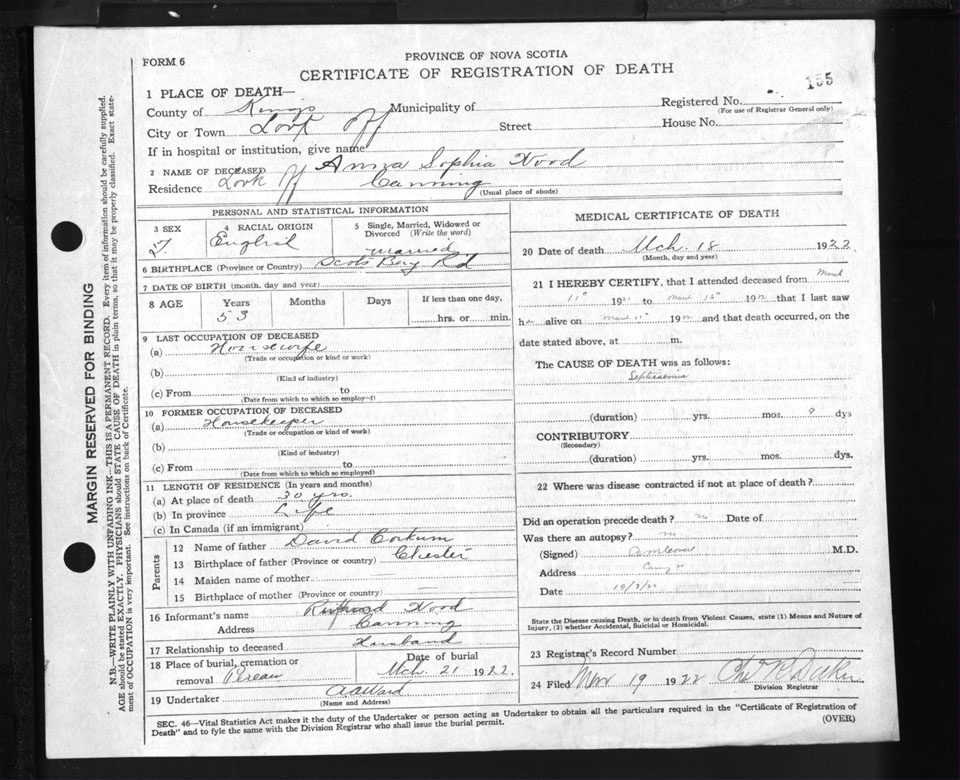 PROVINCE OF NOVA SCOTIA
FORM 6
CERTIFICATE OF REGISTRATION OF DEATH
155
1 PLACE OF DEATH—
County of Kings Municipality of Registered No.
(For use of Registrar General only)
City or Town Look Off Street House No.
If in hospital or institution, give name
2 NAME OF DECEASED Anna Sophia Wood
Residence Look Off Canning
(Usual place of abode)
PERSONAL AND STATISTICAL INFORMATION
3 SEX 4 RACIAL ORIGIN 5 Single, Married, Widowed or Divorced (Write the word)
F. English married
6 BIRTHPLACE (Province or Country) Scots Bay Rd
7 DATE OF BIRTH (month, day and year)
8 AGE Years Months Days If less than one day,
53 hrs. or min.
9 LAST OCCUPATION OF DECEASED
(a) Housewife
(Trade or occupation or kind or work)
(b)
(Kind of industry)
(c) From to
(Date from which to which so employed)
10 FORMER OCCUPATION OF DECEASED
(a) Housekeeper
(Trade or occupation or kind of work)
(b)
(Kind of industry)
(c) From to
(Date from which to which so employed)
11 LENGTH OF RESIDENCE (In years and months)
(a) At place of death 30 yrs.
(b) In province Life
(c) In Canada (if an immigrant)
Parents
12 Name of father David Corkum
13 Birthplace of father (Province or country) Chester
14 Maiden name of mother
15 Birthplace of mother (Province or country)
16 Informant's name Wood
Address Canning
17 Relationship to deceased Husband
18 Place of burial, cremation or removal Pereau Date of burial Mch. 21 1922.
19 Undertaker A A Ward
(Name and Address)
MEDICAL CERTIFICATE OF DEATH
20 Date of death Mch. 18 1922
(Month, day and year)
21 I HEREBY CERTIFY, that I attended deceased from March
11th 192 to March 192 that I last saw
h alive on March 192 and that death occurred, on the
date stated above, at m.
The CAUSE OF DEATH was as follows:
Septicaemia
(duration) yrs. mos. 9 dys
CONTRIBUTORY
(Secondary)
(duration) yrs. mos. dys.
22 Where was disease contracted if not at place of death?
Did an operation precede death? no Date of
Was there an autopsy? no
(Signed) M.D.
Address
Date 19/3/22
State the Disease causing Death, or in death from Violent Causes, state (1) Means and Nature of Injury, (2) whether Accidental, Suicidal or Homicidal.
23 Registrar's Record Number
24 Filed Mar 19 1922
Division Registrar
SEC. 46—Vital Statistics Act makes it the duty of the Undertaker or person acting as Undertaker to obtain all the particulars required in the "Certificate of Registration of
Death" and to fyle the same with the Division Registrar who shall issue the burial permit. (OVER)
MARGIN RESERVED FOR BINDING
N.B.—WRITE PLAINLY WITH UNFADING INK—THIS IS A PERMANENT RECORD. Every item of information should be carefully supplied.
AGE should be stated EXACTLY. PHYSICIANS should STATE CAUSE OF DEATH in plain terms, so that it may be properly classified. Exact state-
ment of OCCUPATION is very important. See instructions on back of Certificate.